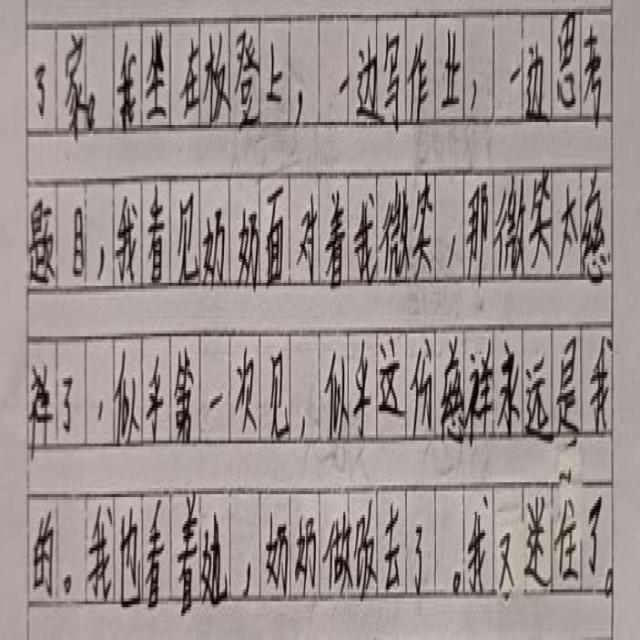 了家。我坐在板登上，一边写作业，一边思考
题目，我看见奶奶面对着我微笑，那微笑太慈
祥了，似乎第一次见，似乎这份慈祥永远是我
的。我也看着她，奶奶做饭去了。我又迷住了。